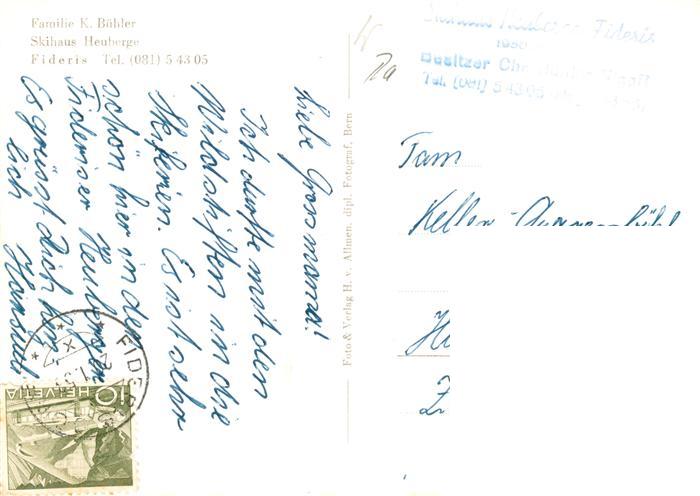 Familie K. Bühler
Skihaus Heuberge
Fideris Tel. (081) 5 43 05
Liebe Grossmama!
Ich durfte mit den
in die
Skiferien. Es ist sehr
schön hier in den
Fideriser Heubergen
Es grüsst Dich herz-
lich
Foto & Verlag H. v. Allmen, dipl. Fotograf, Bern
Skihaus Heuberge Fideris
Besitzer
Tel. (081) 5 43 05
Fam
Keller-
HELVETIA
10
FIDERIS